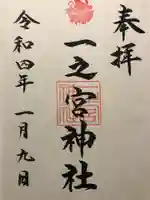 奉拝
一之宮神社
令和四年 一月九日